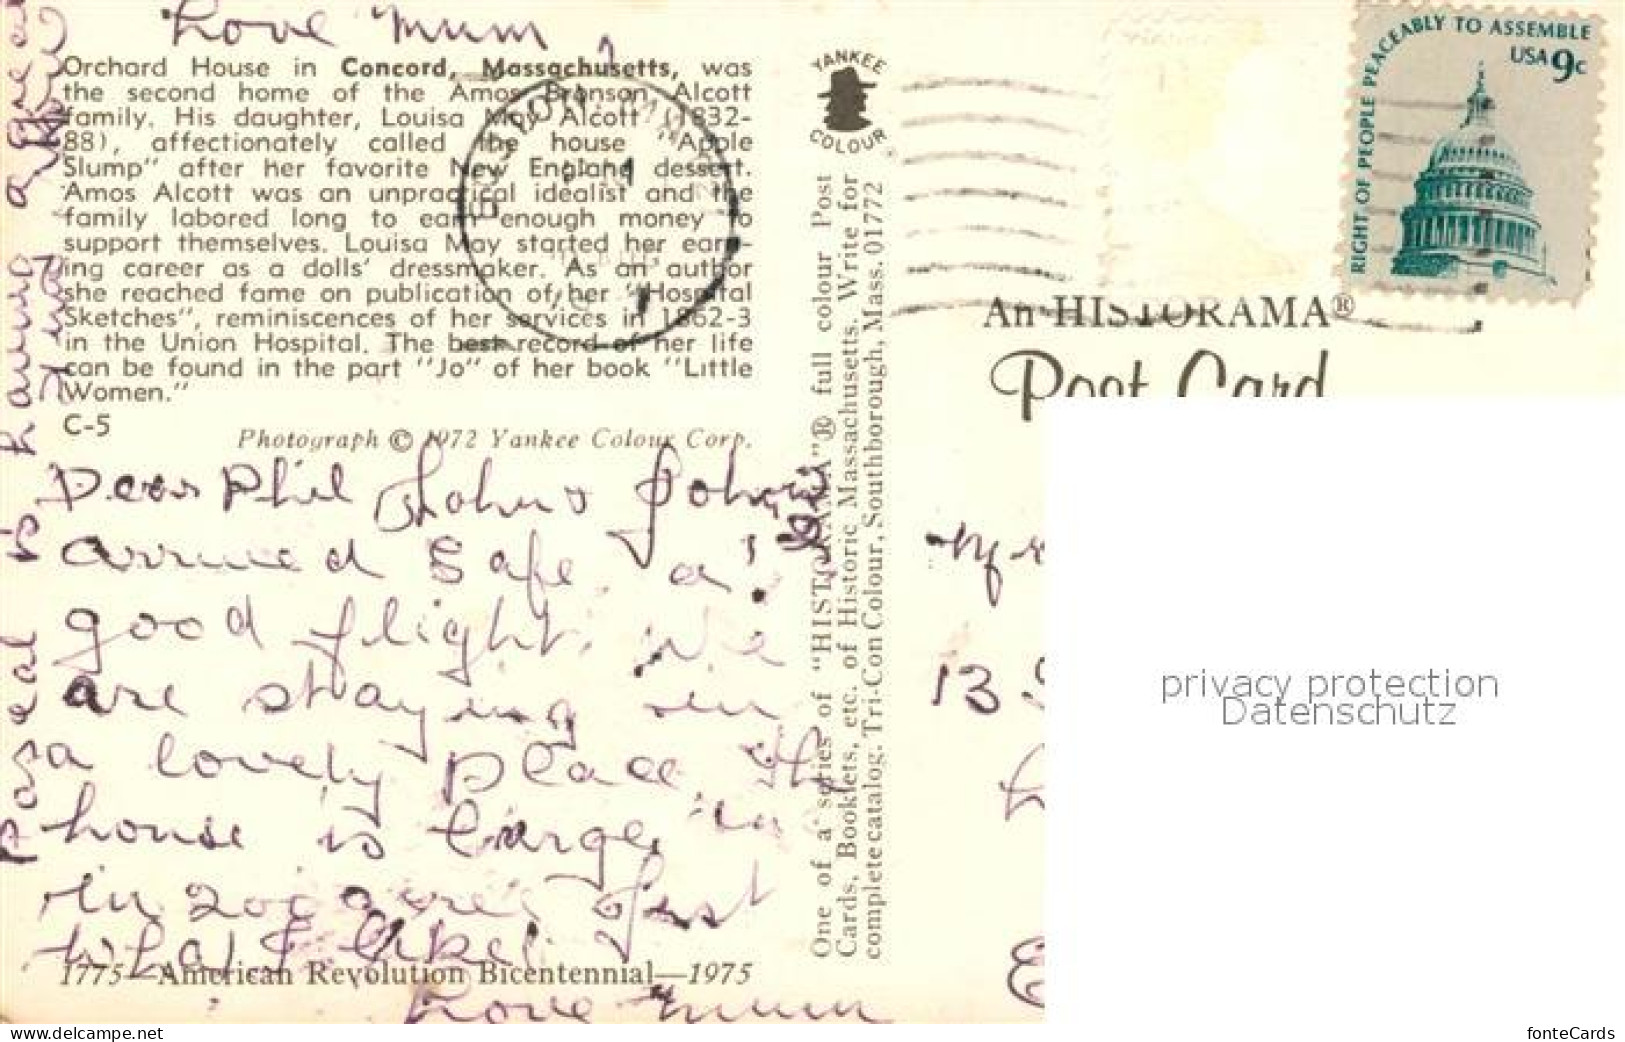 Love Mum
Orchard House in Concord, Massachusetts, was
the second home of the Amos Bronson Alcott
family. His daughter, Louisa May Alcott (1832-
88), affectionately called the house "Apple
Slump" after her favorite New England dessert.
Amos Alcott was an unpractical idealist and the
family labored long to earn enough money to
support themselves. Louisa May started her earn-
ing career as a dolls' dressmaker. As an author
she reached fame on publication of her "Hospital
Sketches", reminiscences of her services in 1862-3
in the Union Hospital. The best record of her life
can be found in the part "Jo" of her book "Little
Women."
C-5
Photograph © 1972 Yankee Colour Corp.
Dear Phil John &
arrived safe, a
good flight. We
are staying in
a lovely place. The
house is large,
in 20 acres Just
what I like.
1775—American Revolution Bicentennial—1975
Love Mum
is having a
YANKEE
COLOUR
One of a series of "HISTORAMA"® full colour Post
Cards, Booklets, etc. of Historic Massachusetts. Write for
complete catalog. Tri-Con Colour, Southborough, Mass. 01772
BOSTON
RIGHT OF PEOPLE PEACEABLY TO ASSEMBLE
USA 9c
An HISTORAMA®
Post Card
13
privacy protection
Datenschutz
www.delcampe.net
fonteCards